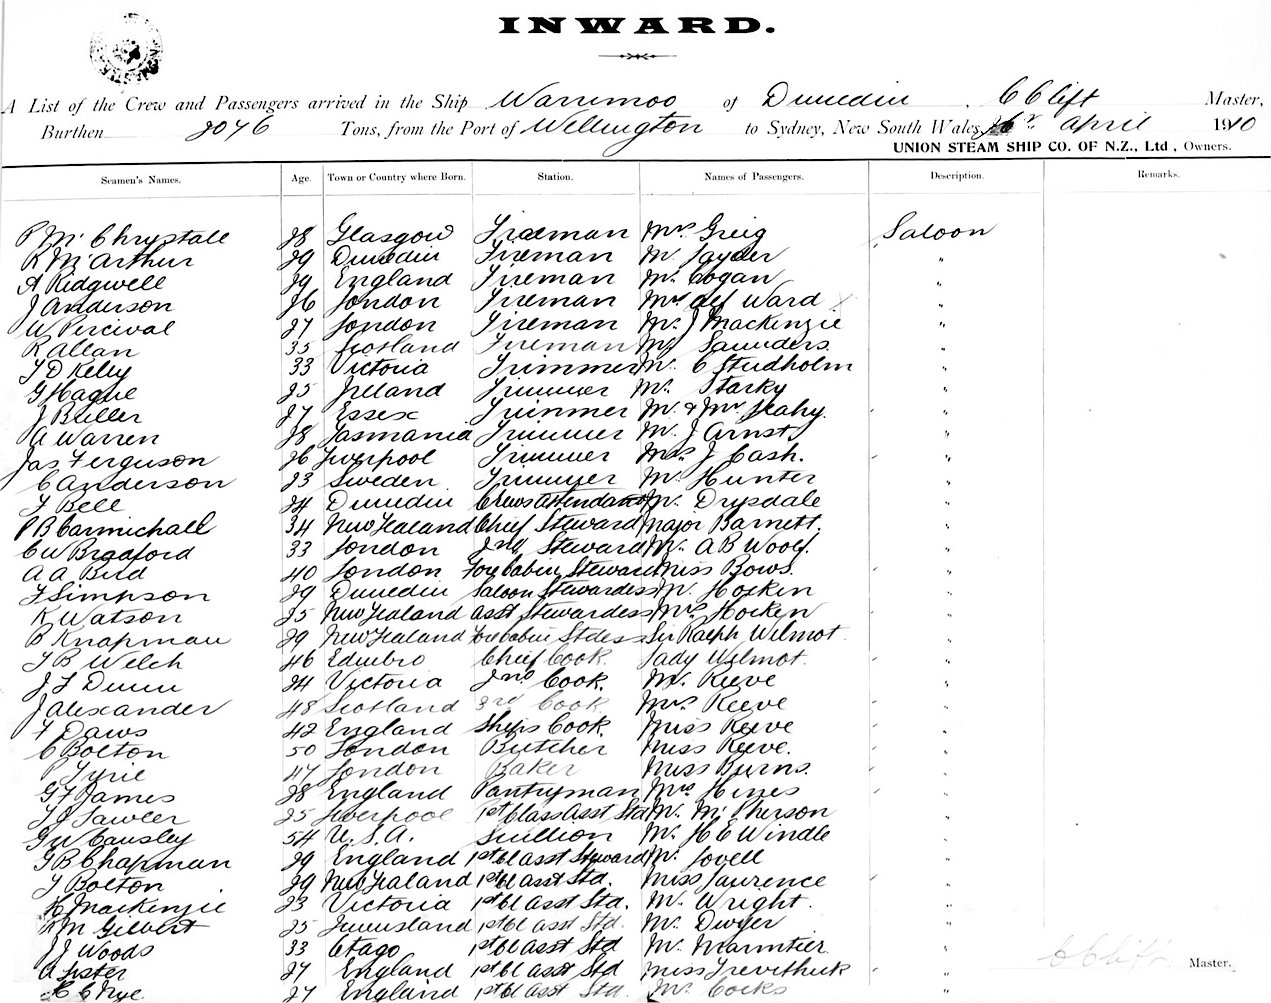 INWARD.
A List of the Crew and Passengers arrived in the Ship Warrimoo of Dunedin, C Clift Master,
Burthen 2076 Tons, from the Port of Wellington to Sydney, New South Wales, April 1910
UNION STEAM SHIP CO. OF N.Z., Ltd, Owners.
Seamen's Names. Age. Town or Country where Born. Station. Names of Passengers. Description. Remarks.
P McChrystall 28 Glasgow Fireman Mrs Greig Saloon
R McArthur 29 Dunedin Fireman Mr Sayder "
A Ridgwell 29 England Fireman Mr Cogan "
J Anderson 26 London Fireman Ward "
W Percival 27 London Fireman Mr J Mackenzie "
R Allan 35 Scotland Fireman Saunders "
T D Kelly 33 Victoria Trimmer Mr C Studholm "
G Hague 25 Ireland Trimmer Mr Starky "
J Buller 27 Essex Trimmer Mr & Mrs Leahy "
A Warren 28 Tasmania Trimmer Mr J Arnst "
Jas Ferguson 26 Liverpool Trimmer Mrs J Cash. "
C Anderson 23 Sweden Trimmer Mr Hunter "
F Bell 24 Dunedin Crews Attendant Mr Drysdale "
P B Carmichall 34 New Zealand Chief Steward Major Barnett. "
C W Bradford 33 London 2nd Steward Mr A B Woolf. "
A A Bird 40 London Fore Cabin Steward Miss Bows. "
F Simpson 29 Dunedin Saloon Stewardess Mr Hocken "
K Watson 25 New Zealand Asst Stewardess Mrs Hocken "
B Knapman 29 New Zealand Fore Cabin Stdess Sir Ralph Wilmot "
T B Welch 46 Edinbro Chief Cook. Lady Wilmot. "
J F Dunn 24 Victoria 2nd Cook. Mr Reeve "
J Alexander 48 Scotland 3rd Cook Mrs Reeve "
F Daws 42 England Ships Cook. Miss Reeve "
C Bolton 50 London Butcher Miss Reeve. "
P Pyrie 47 London Baker Miss Burns. "
G F James 28 England Pantryman Mrs Hines "
T J Lawler 25 Liverpool 1st Class Asst Std Mr McPherson "
G W Causley 54 U.S.A. Scullion Mr H E Windle "
G B Chapman 29 England 1st Cl Asst Steward Mr Lovell "
T Bolton 29 New Zealand 1st Cl Asst Std. Miss Laurence "
H Mackenzie 23 Victoria 1st Cl Asst Std. Mr Wright. "
M Gilbert 25 Queensland 1st Cl Asst Std. Mr Dwyer "
J J Woods 33 Otago 1st Cl Asst Std Mr "
A Lister 27 England 1st Cl Asst Std Miss Trevithick "
C Nye 27 England 1st Cl Asst Std. Mr Cocks "
C Clift Master.